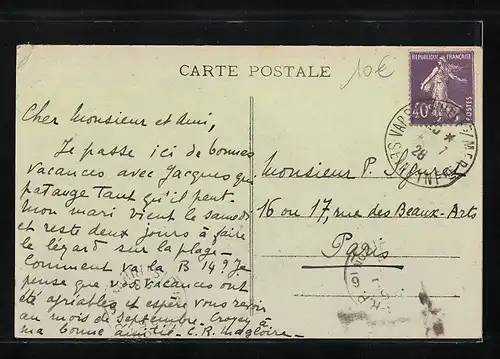 CARTE POSTALE
10€
REPUBLIQUE FRANÇAISE
40c
POSTES
28
Cher Monsieur et ami,
Je passe ici de bonnes
vacances avec Jacques qui
patauge tant qu'il peut.
Mon mari vient le samedi
et reste deux jours à faire
le lézard sur la plage.
Comment va la B 14? Je
pense que vos vacances ont
été agréables et espère vous revoir
au mois de septembre. Croyez à
ma bonne amitié. C.R.
Monsieur P.
16 ou 17, rue des Beaux-Arts
Paris